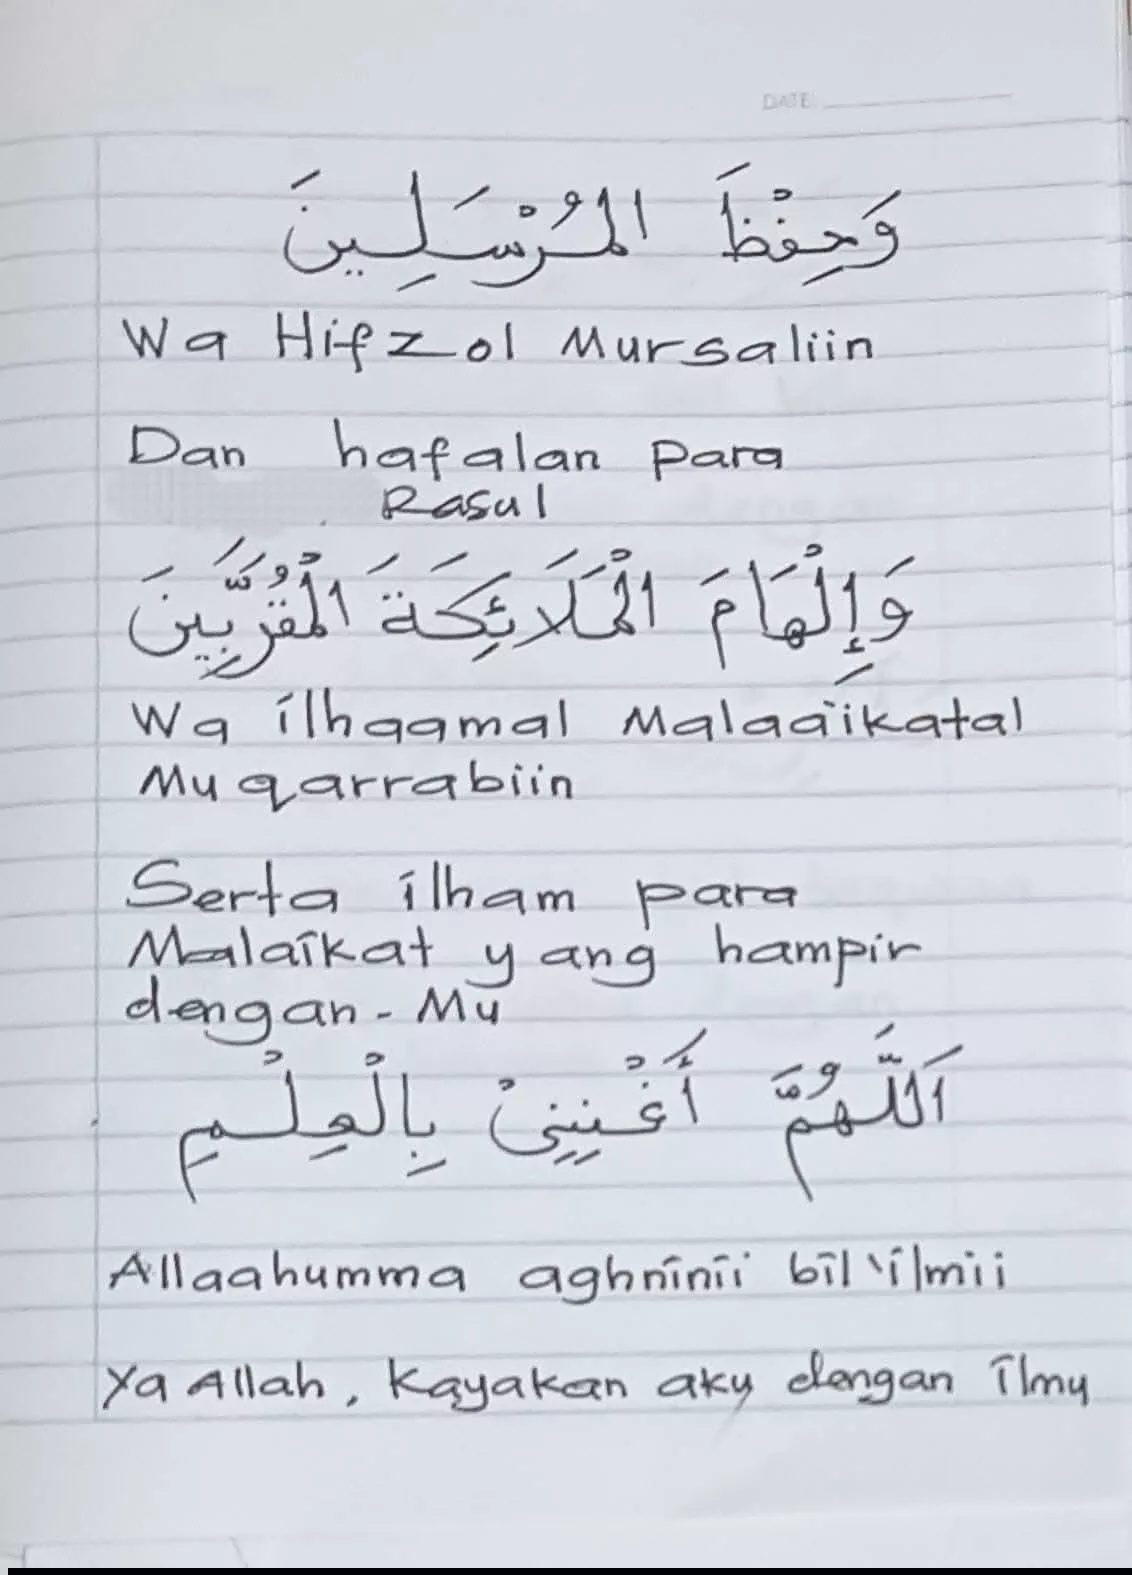 DATE:
وَحِفْظَ الْمُرْسَلِينَ
Wa Hifzol Mursaliin
Dan hafalan para
Rasul
وَإِلْهَامَ الْمَلَائِكَةَ الْمُقَرَّبِينَ
Wa ilhaamal Malaaikatal
Muqarrabiin
Serta ilham para
Malaikat yang hampir
dengan-Mu
اَللَّهُمَّ أَغْنِنِيْ بِالْعِلْمِ
Allaahumma aghninii bil 'ilmii
Ya Allah, Kayakan aku dengan ilmu